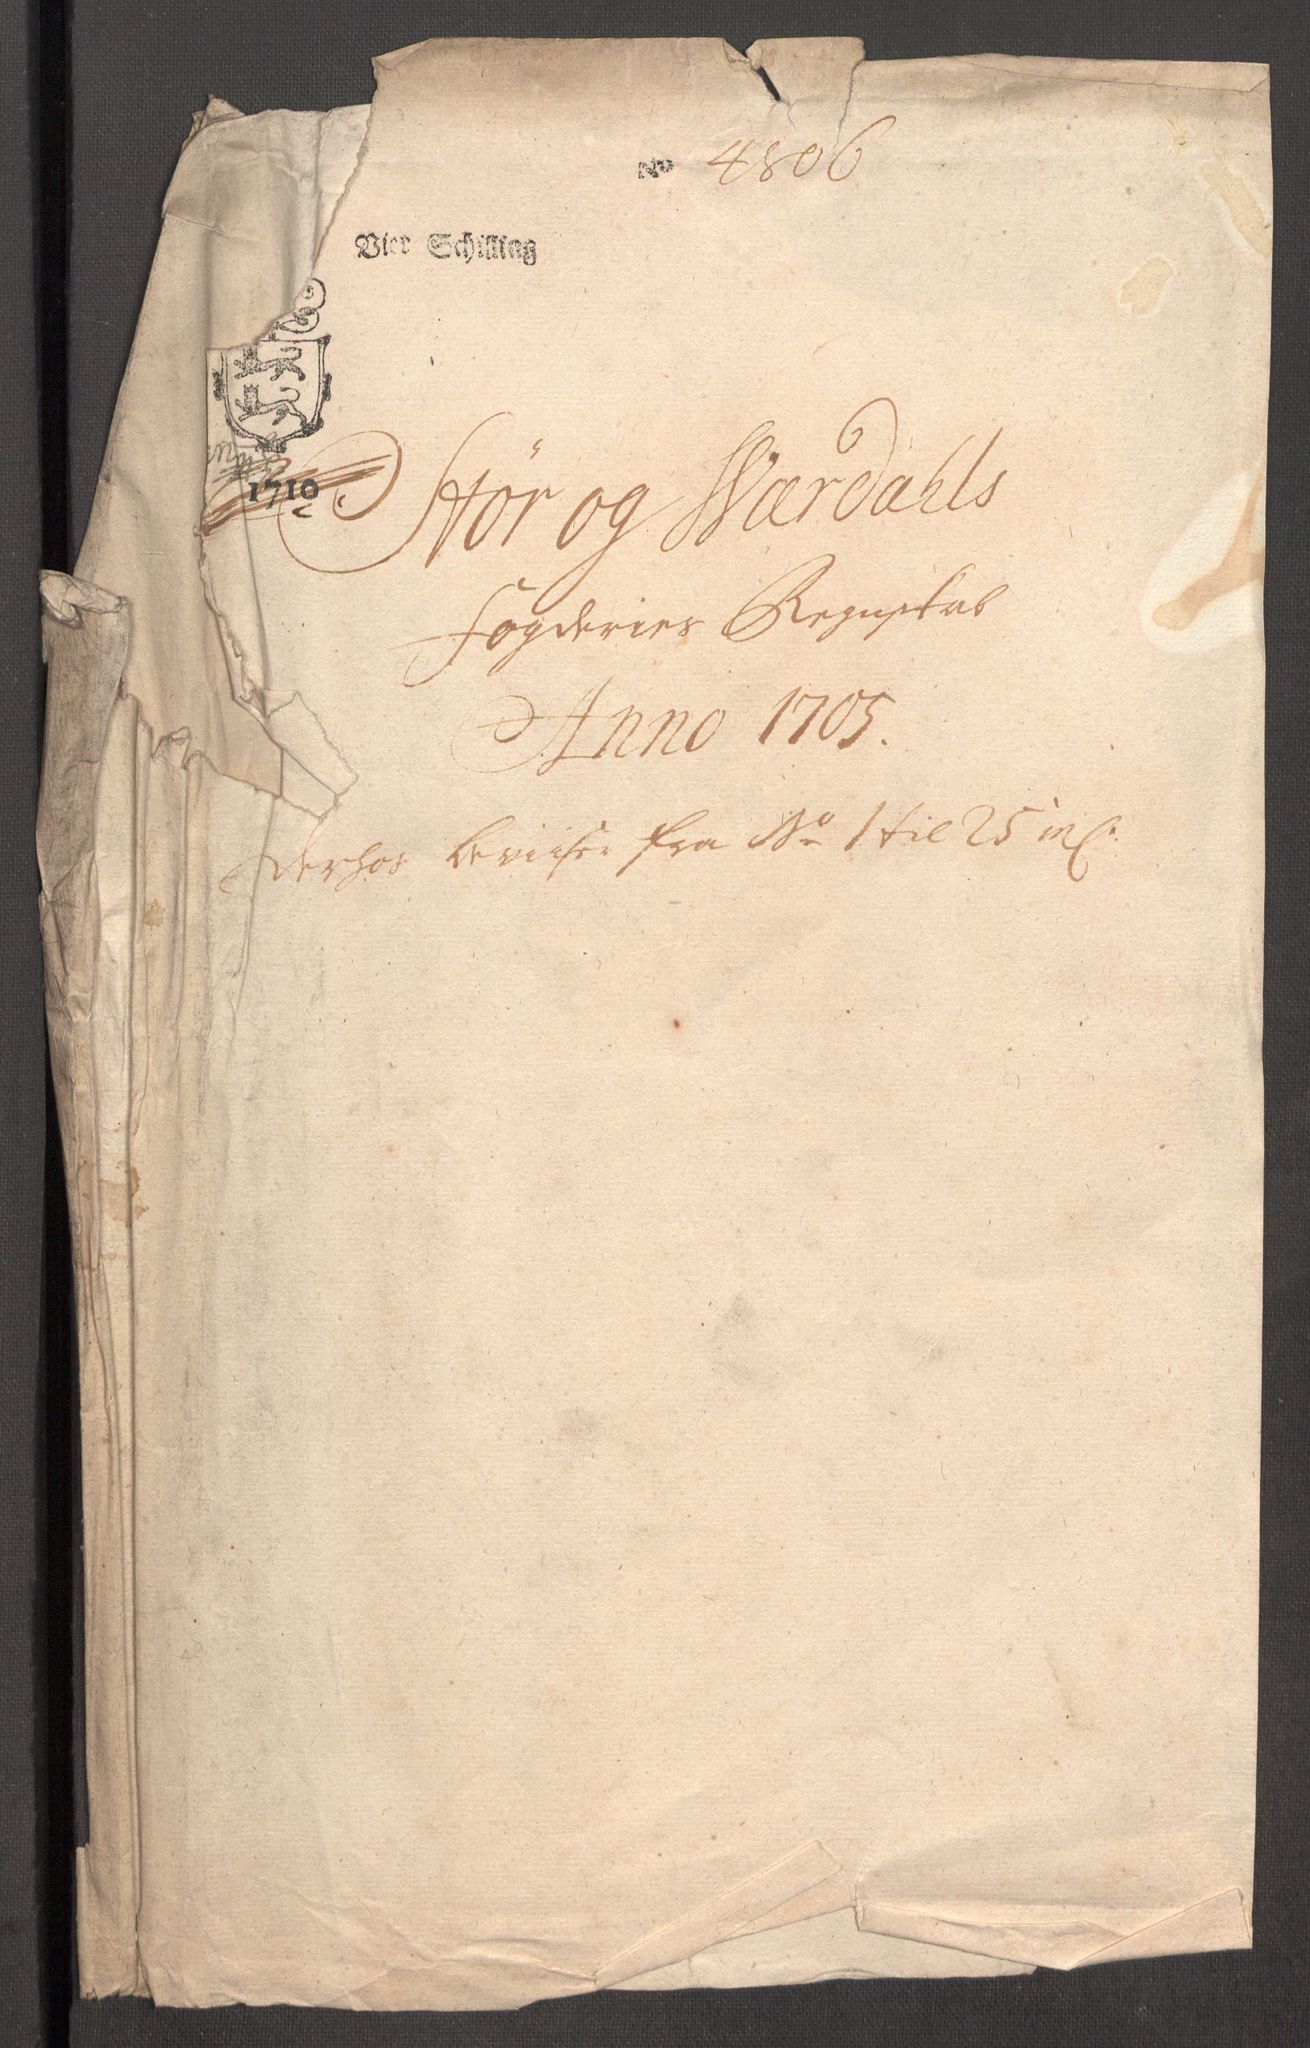 No 4806
Vier Schilling
1710
Stör og Wærdahls
Fogderies Regnskab
Anno 1705.
derhos beviiser fra No 1 til 25 incl.